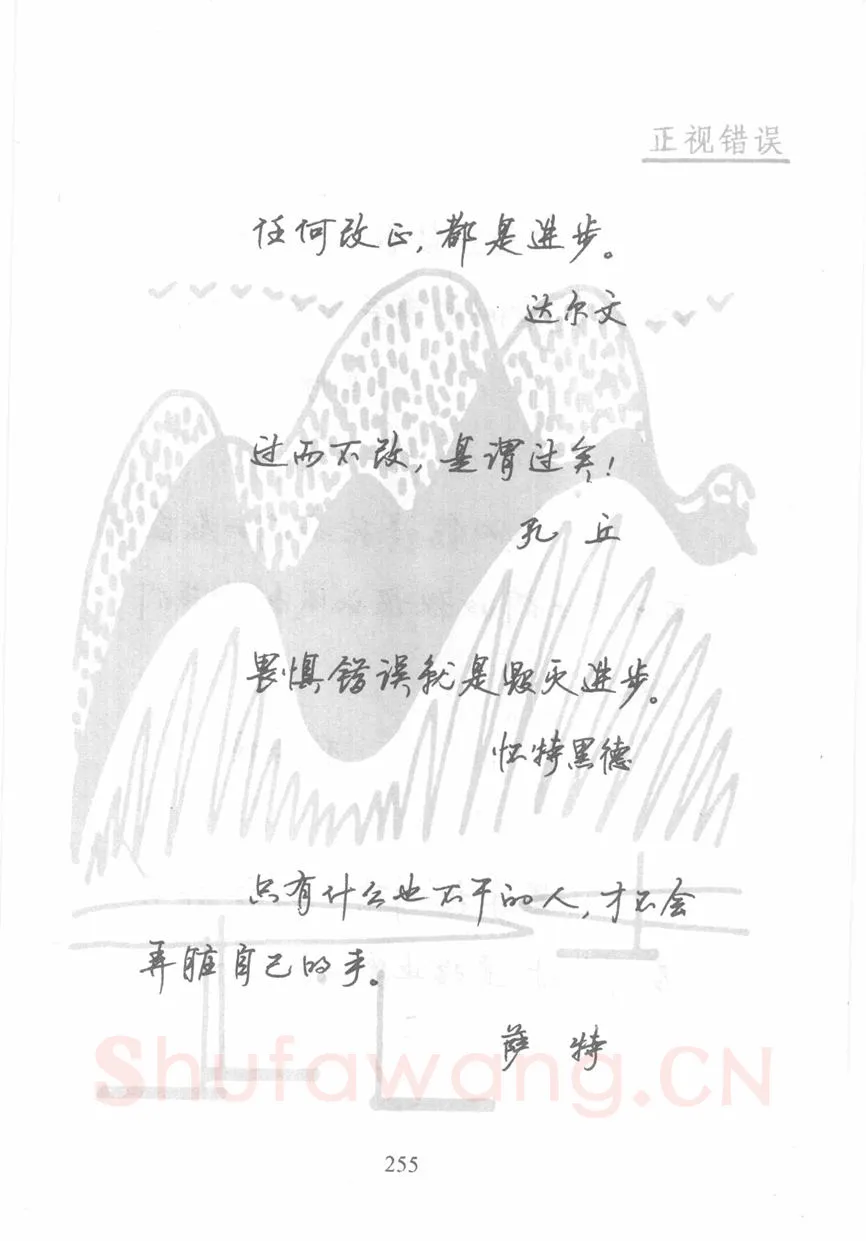 正视错误
任何改正,都是进步。
达尔文
过而不改,是谓过矣!
孔丘
畏惧错误就是毁灭进步。
怀特黑德
只有什么也不干的人,才不会
弄脏自己的手。
萨特
Shufawang.CN
255